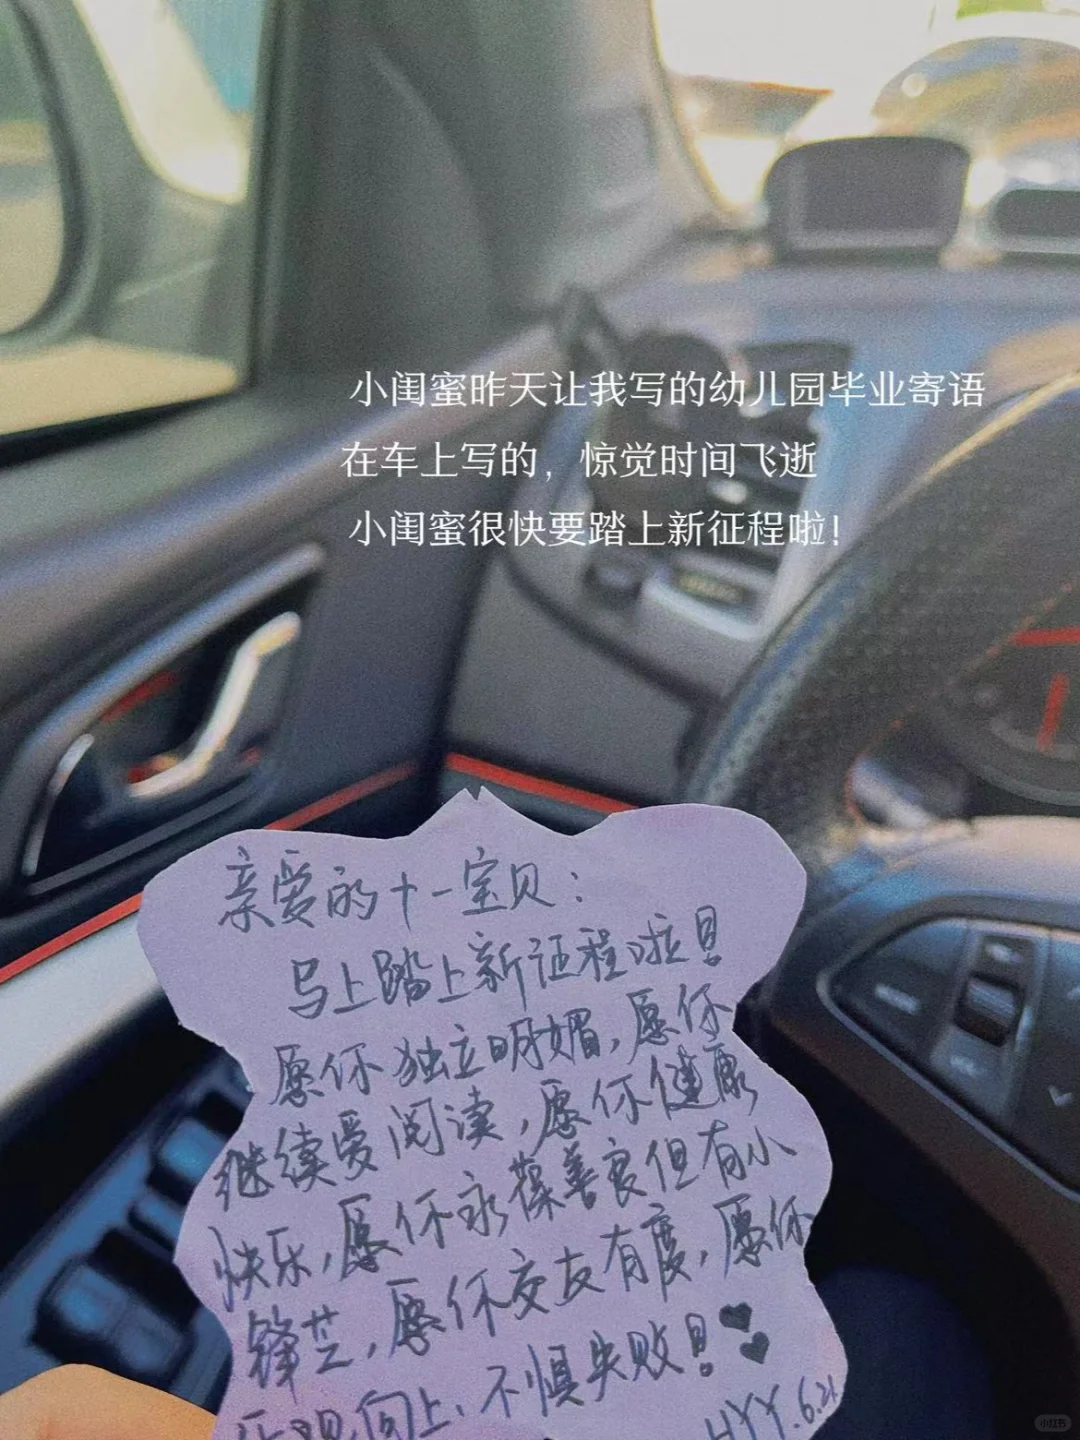 小闺蜜昨天让我写的幼儿园毕业寄语
在车上写的，惊觉时间飞逝
小闺蜜很快要踏上新征程啦！
亲爱的十一宝贝：
马上踏上新征程啦！
愿你独立明媚，愿你
继续爱阅读，愿你健康
快乐，愿你永葆善良但有小
锋芒，愿你交友有度，愿你
乐观向上、不惧失败！
HYY.6.21
小红书